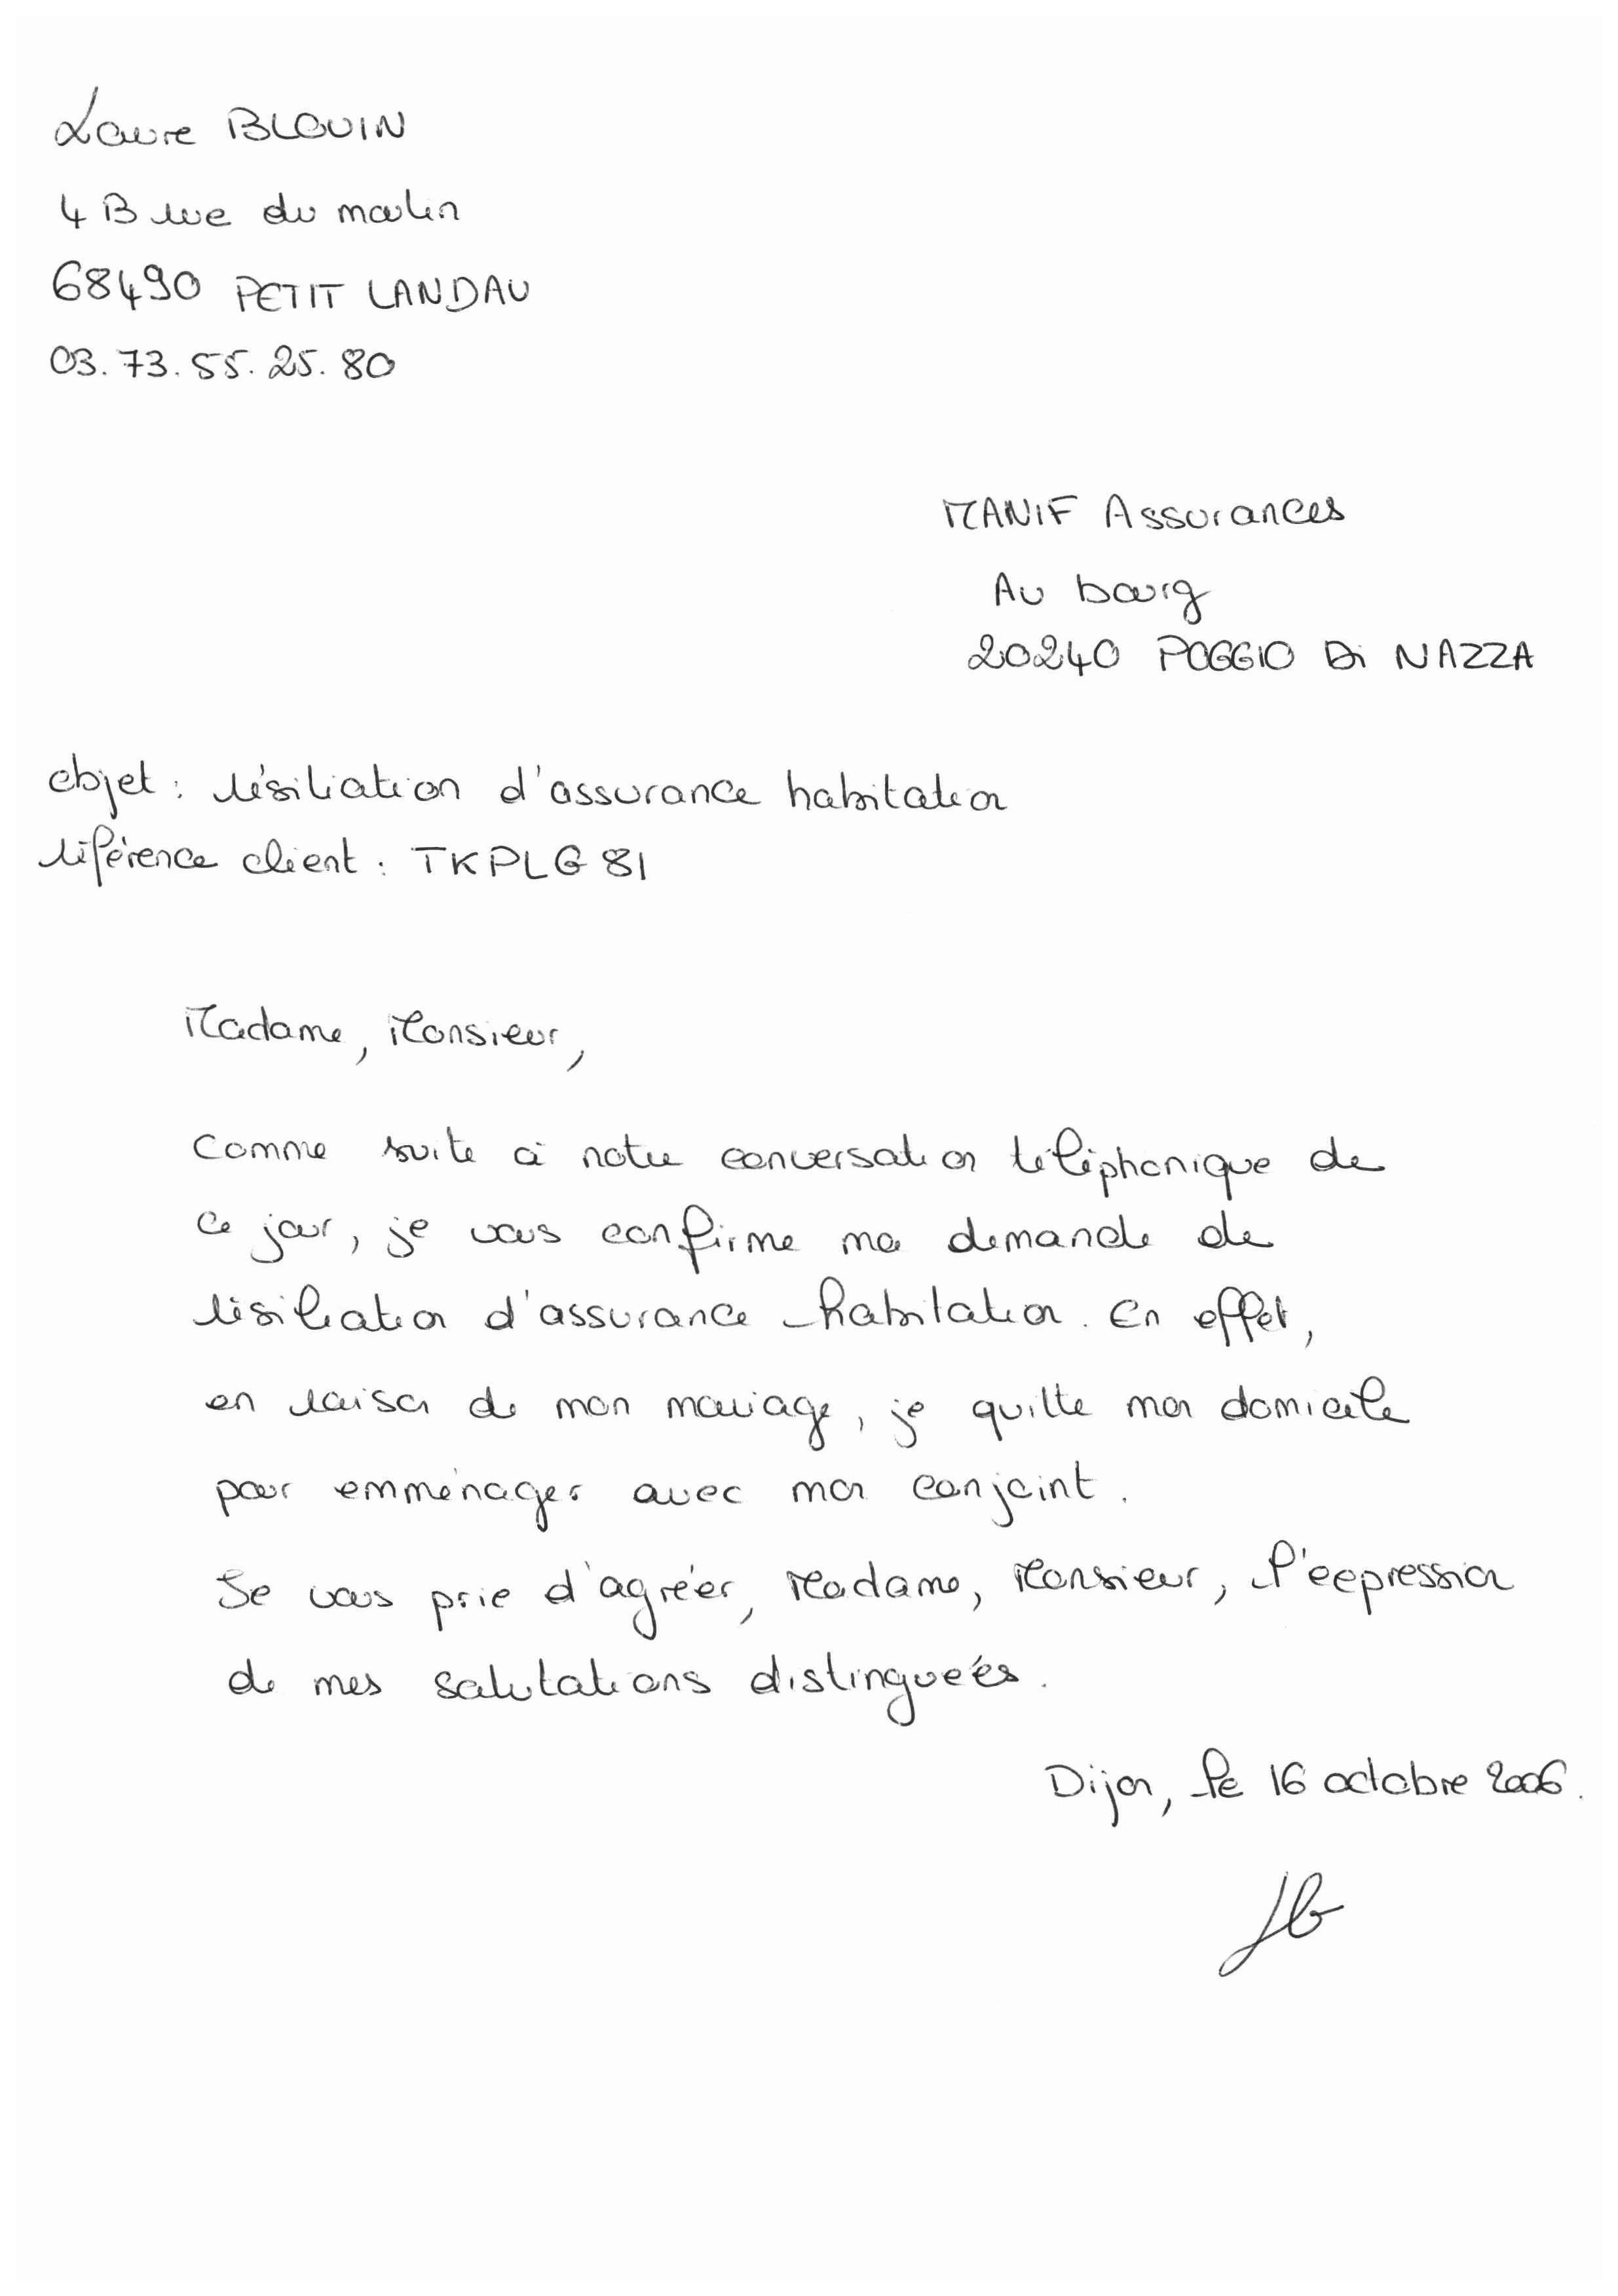 Laure BLOUIN
4 B rue du moulin
68490 PETIT LANDAU
03.73.55.25.80
MANIF Assurances
Au bourg
20240 POGGIO Di NAZZA
objet : résiliation d'assurance habitation
référence client : TKPLG81
Madame, Monsieur,
Comme suite à notre conversation téléphonique de
ce jour, je vous confirme ma demande de
résiliation d'assurance habitation. En effet,
en raison de mon mariage, je quitte mon domicile
pour emménager avec mon conjoint.
Je vous prie d'agréer, Madame, Monsieur, l'expression
de mes salutations distinguées.
Dijon, le 16 octobre 2006.